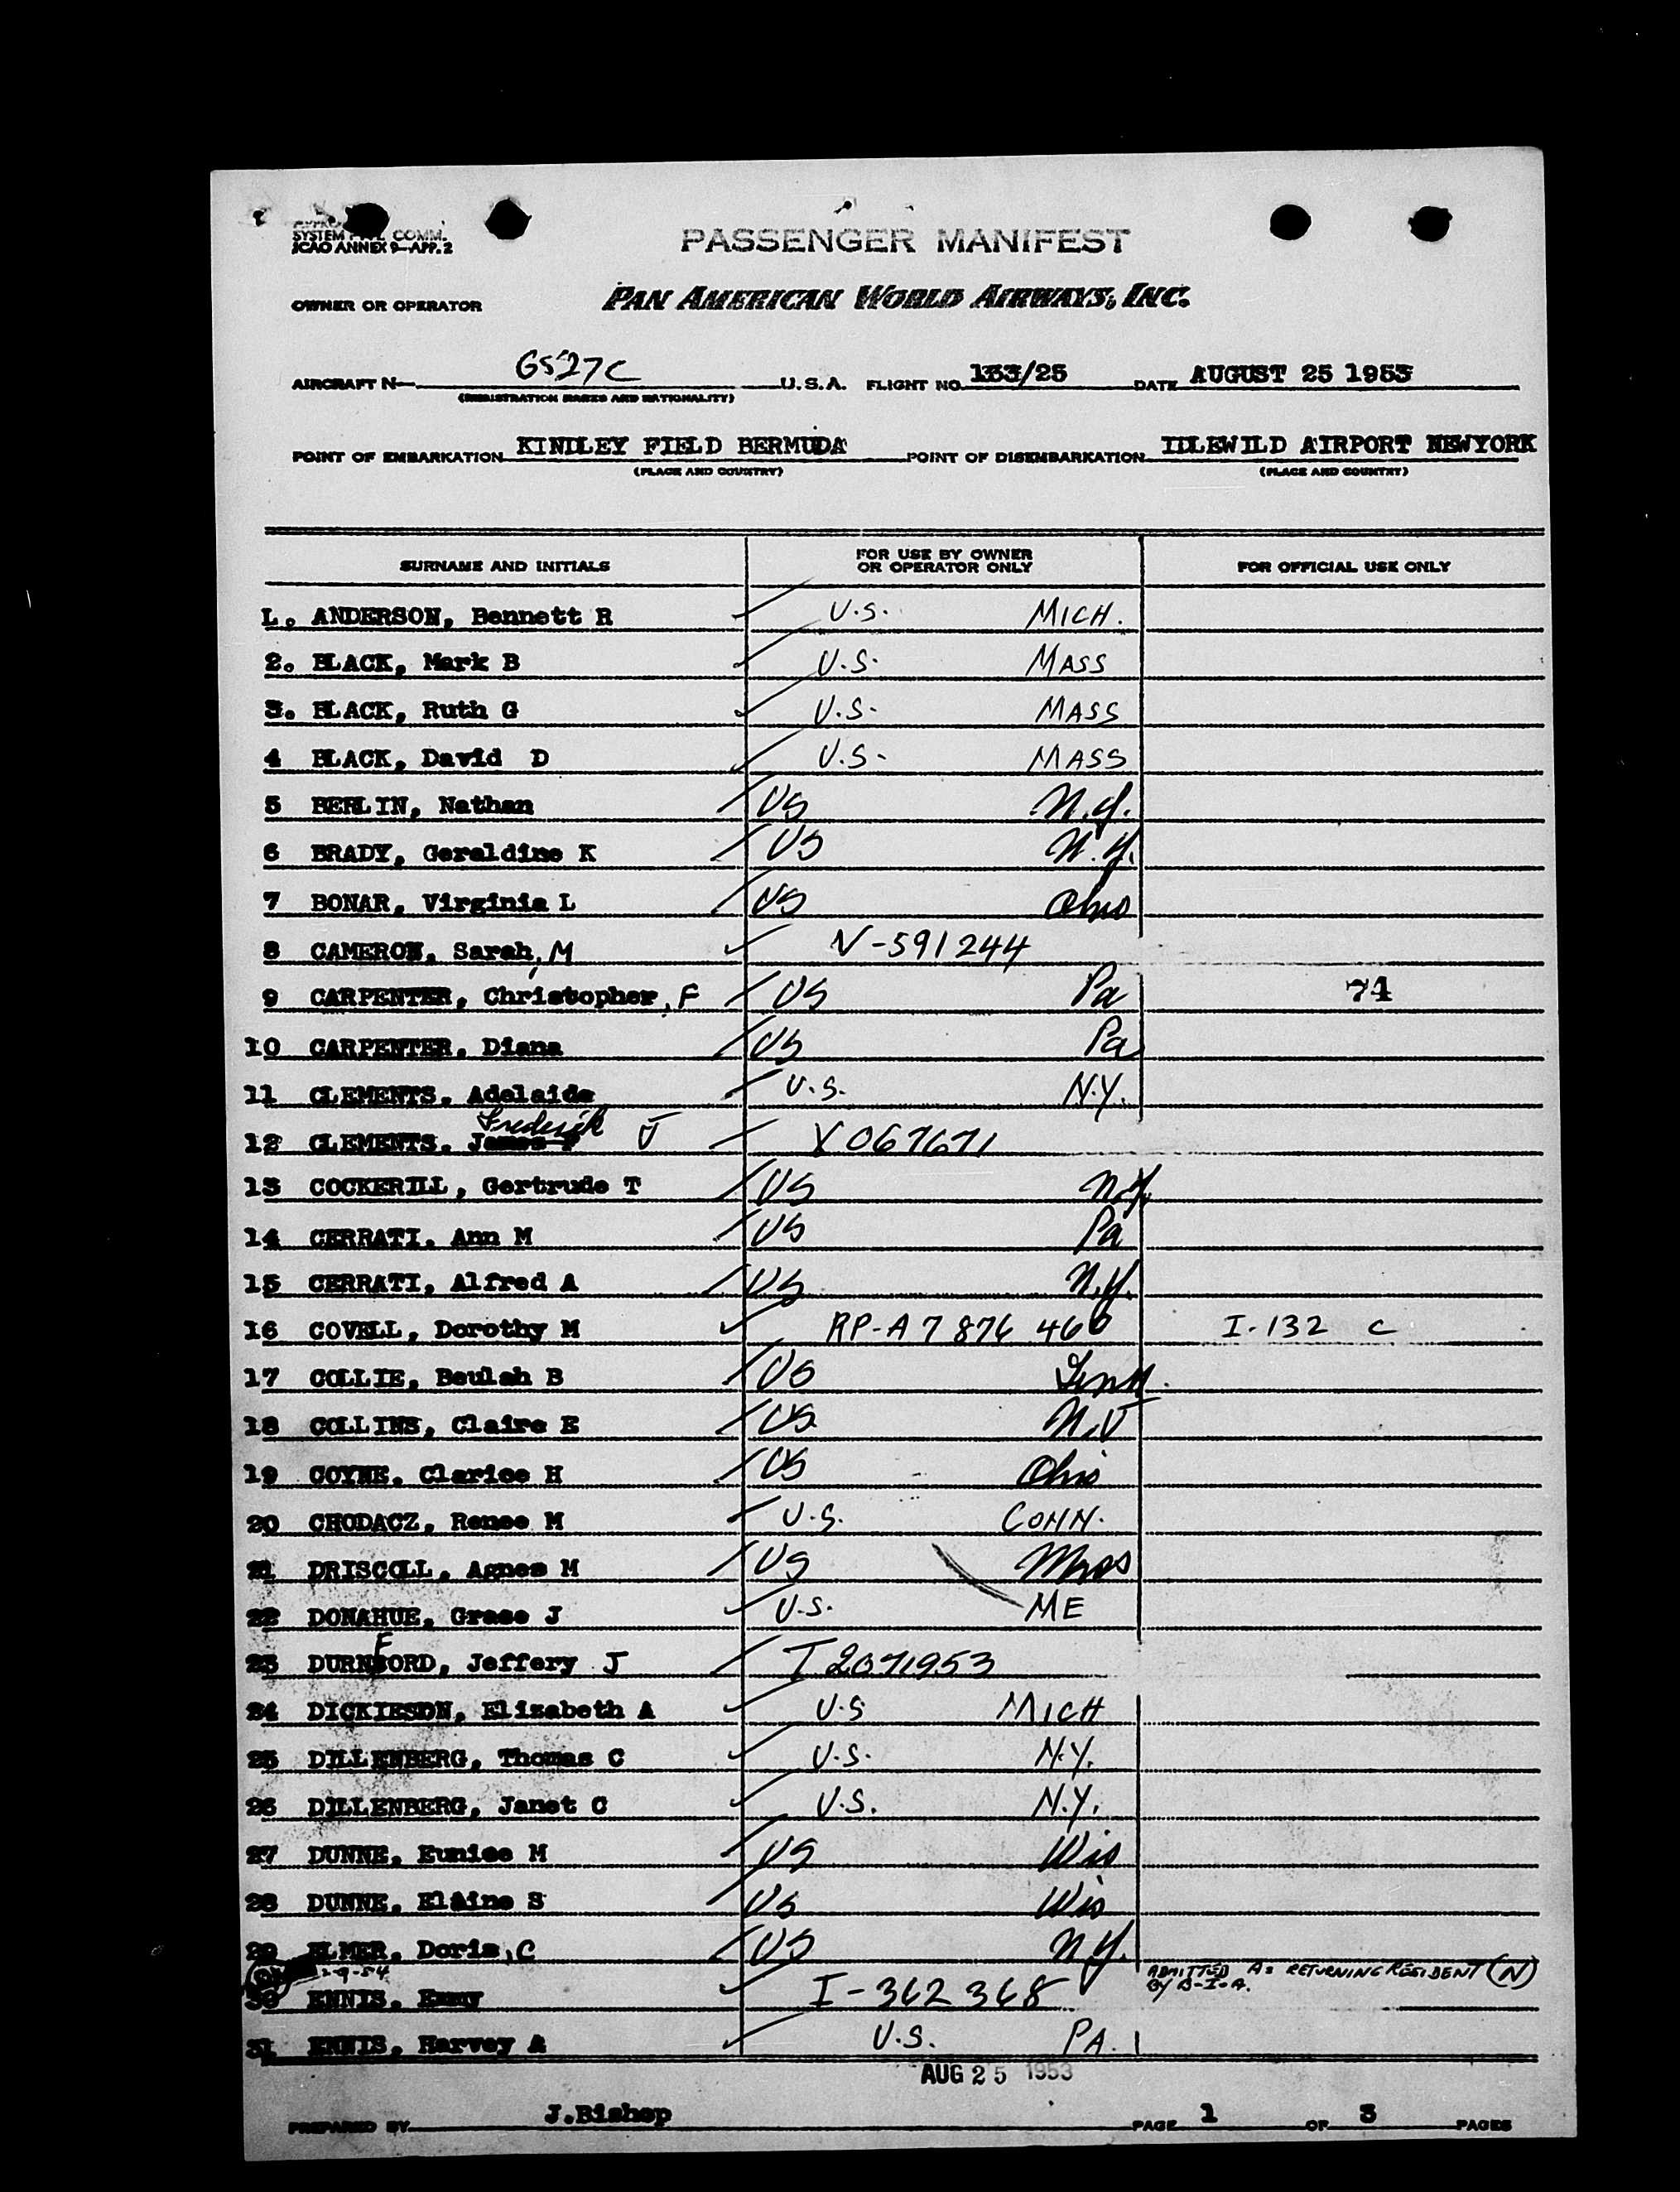 SYSTEM COMM.
ICAO ANNEX 9—APP. 2
PASSENGER MANIFEST
OWNER OR OPERATOR PAN AMERICAN WORLD AIRWAYS, INC.
AIRCRAFT N— 6527C U.S.A. FLIGHT NO. 133/25 DATE AUGUST 25 1953
(REGISTRATION MARKS AND NATIONALITY)
POINT OF EMBARKATION KINDLEY FIELD BERMUDA POINT OF DISEMBARKATION IDLEWILD AIRPORT NEWYORK
(PLACE AND COUNTRY) (PLACE AND COUNTRY)
SURNAME AND INITIALS FOR USE BY OWNER OR OPERATOR ONLY FOR OFFICIAL USE ONLY
1. ANDERSON, Bennett R U.S. MICH.
2. BLACK, Mark B U.S. MASS
3. BLACK, Ruth G U.S. MASS
4 BLACK, David D U.S. MASS
5 BERLIN, Nathan US N.Y.
6 BRADY, Geraldine K US N.Y.
7 BONAR, Virginia L US Ohio
8 CAMERON, Sarah, M V-591244
9 CARPENTER, Christopher, F US Pa 74
10 CARPENTER, Diana US Pa
11 CLEMENTS, Adelaide U.S. N.Y.
Frederick
12 CLEMENTS, James F J X067671
13 COCKERILL, Gertrude T US N.Y.
14 CERRATI, Ann M US Pa
15 CERRATI, Alfred A US N.Y.
16 COVELL, Dorothy M RP-A7 876 466 I-132 C
17 COLLIE, Beulah B US Tenn.
18 COLLINS, Claire E US N.J
19 COYNE, Clarice H US Ohio
20 CHODACZ, Renee M U.S. CONN.
21 DRISCOLL, Agnes M US Mass
22 DONAHUE, Grace J U.S. ME
23 DURNFORD, Jeffery J I2071953
24 DICKIESON, Elizabeth A U.S MICH
25 DILLENBERG, Thomas C U.S. N.Y.
26 DILLENBERG, Janet C U.S. N.Y.
27 DUNNE, Eunice M US Wis
28 DUNNE, Elaine S US Wis
29 ELMER, Doris, C US N.Y.
2-9-54 ADMITTED AS RETURNING RESIDENT (N)
BY B-I-A.
30 ENNIS, Emmy I-362368
31 ENNIS, Harvey A U.S. PA.
AUG 25 1953
PREPARED BY J.Bishop PAGE 1 OF 3 PAGES